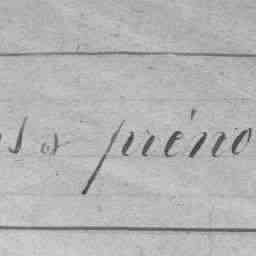 & préno